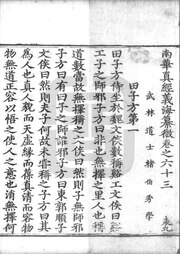 南華真經義海纂微卷之六十三
武林道士褚伯秀學
田子方第一
田子方侍坐於魏文侯數稱谿工文侯曰谿
工子之師邪子方曰非也無擇之里人也稱
道數當故無擇稱之文侯曰然則子無師邪
子方曰有曰子之師誰邪子方曰東郭順子
文侯曰然則夫子何故未嘗稱之子方曰其
為人也真人貌而天虛緣而葆真清而容物
物無道正容以悟之使人之意也消無擇何